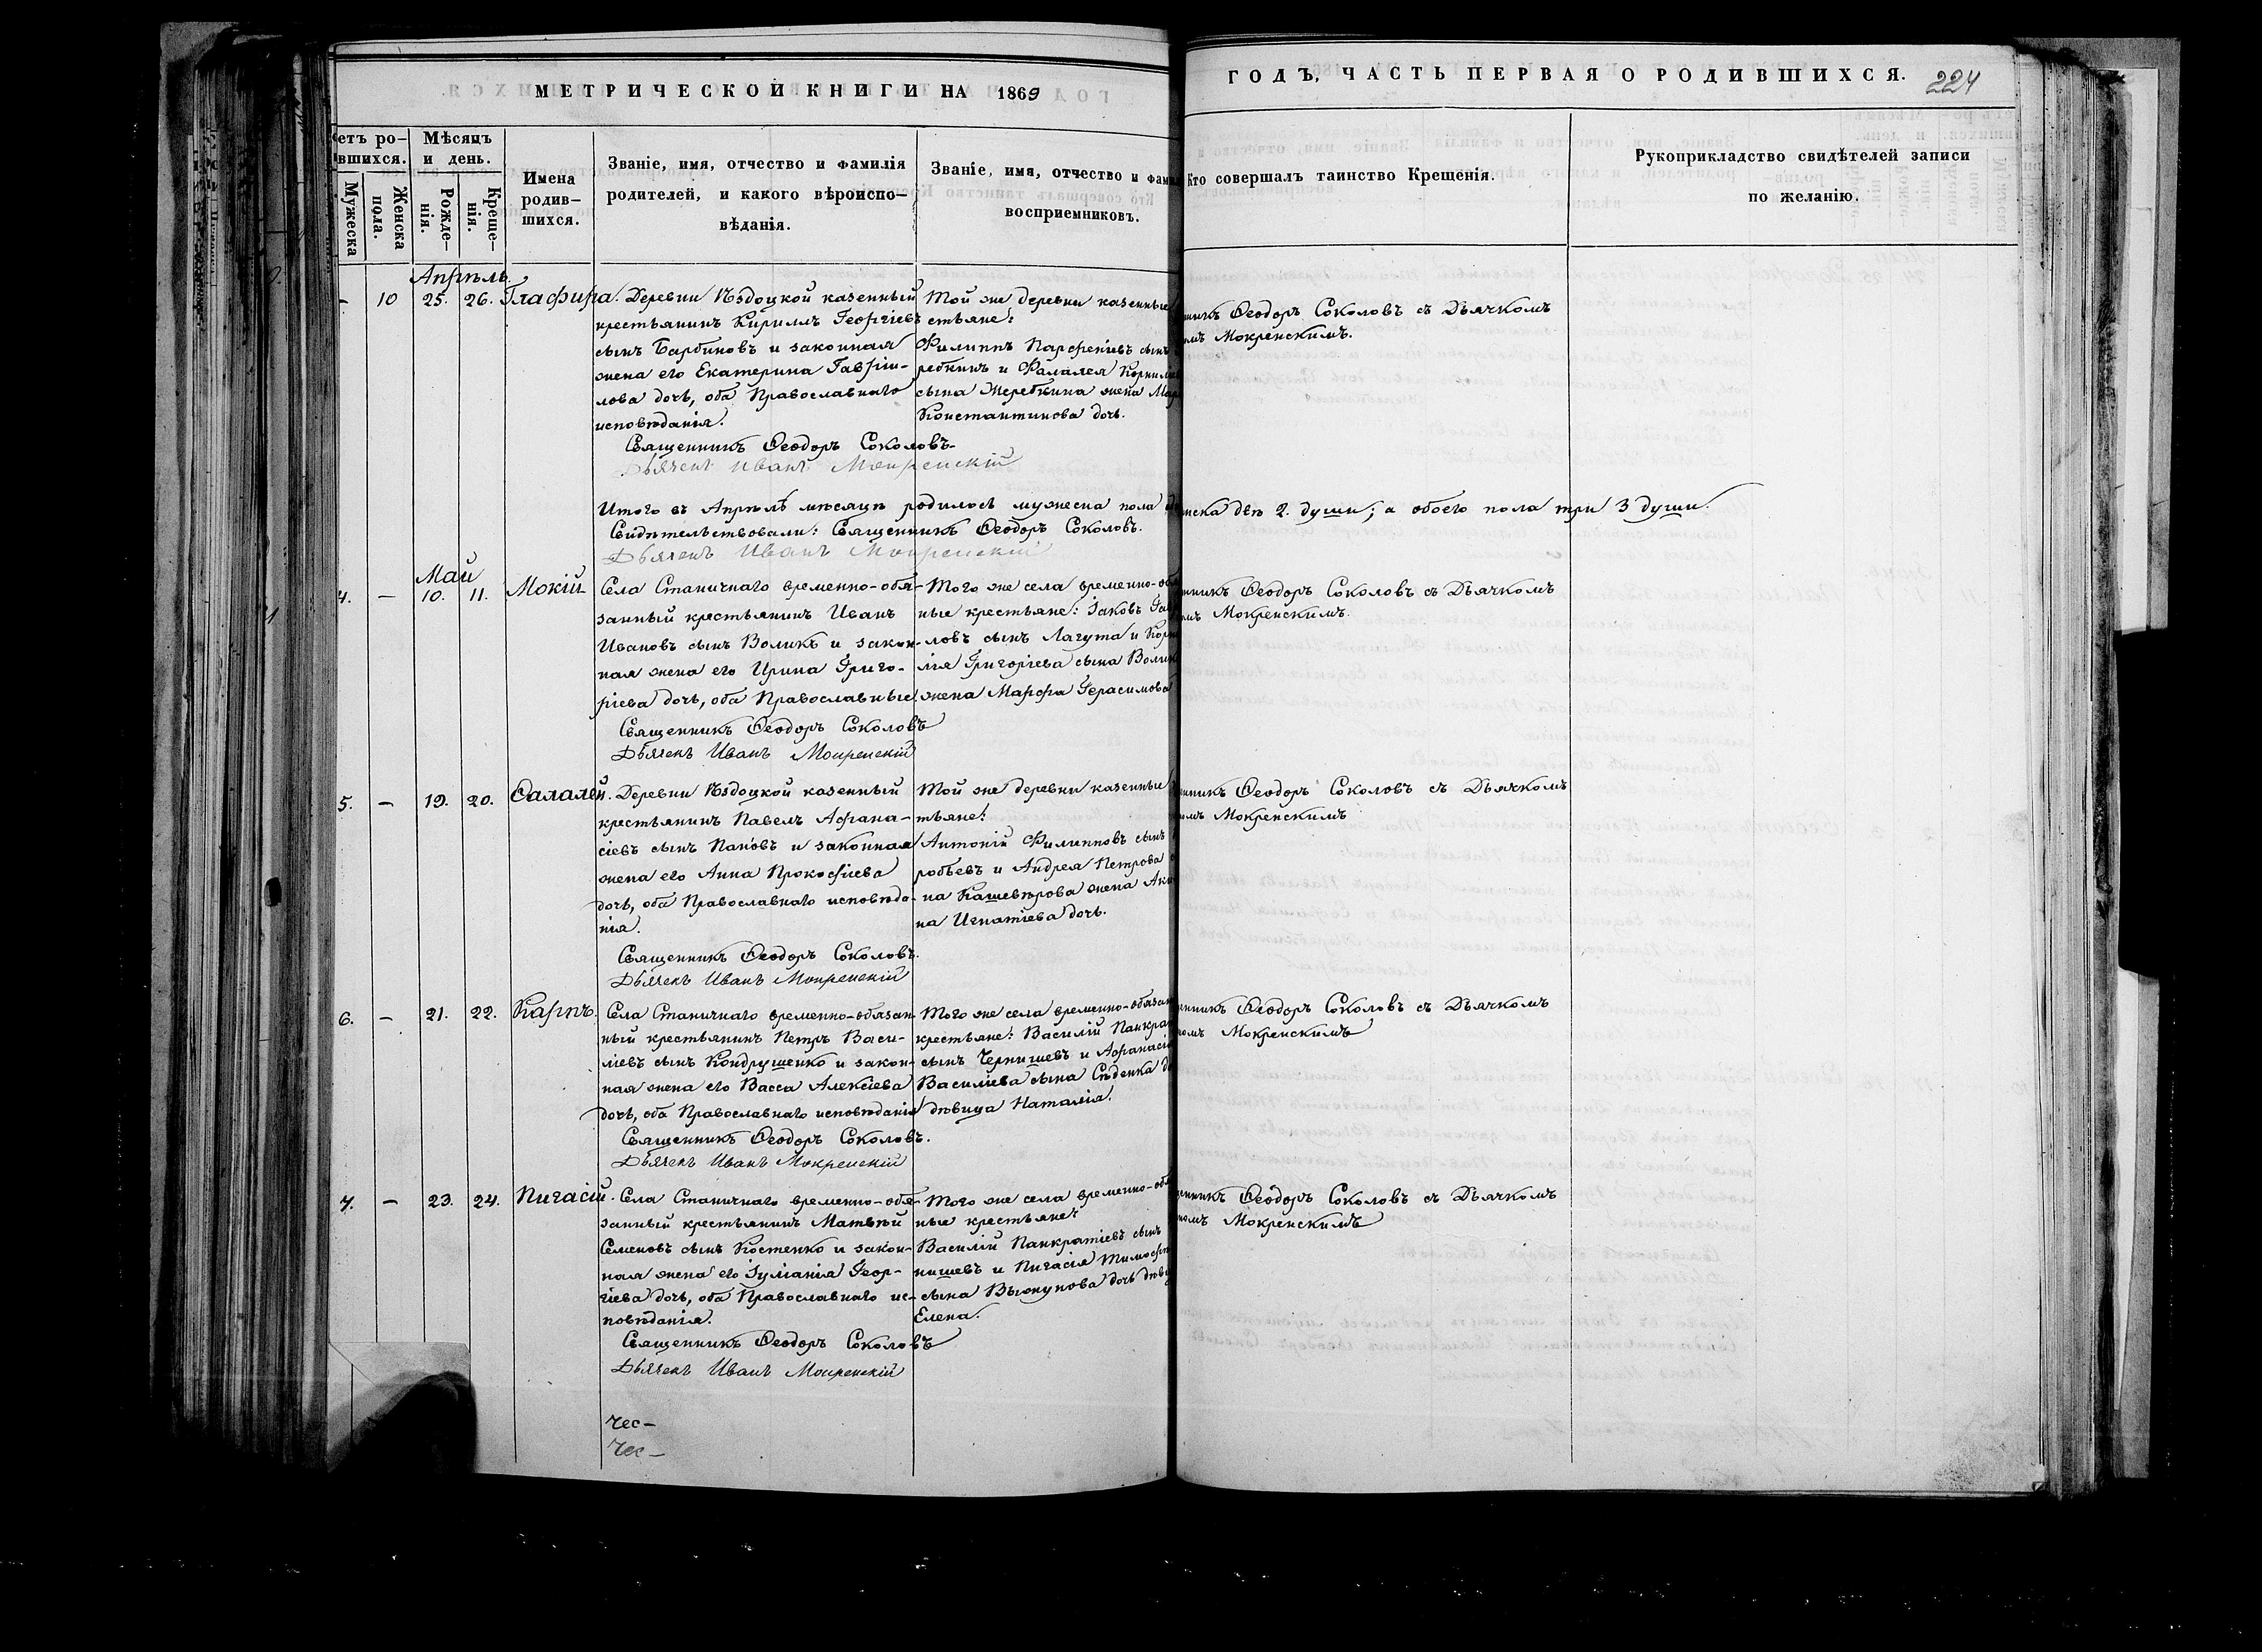 МЕТРИЧЕСКОЙ КНИГИ НА 1869
ГОДЪ, ЧАСТЬ ПЕРВАЯ О РОДИВШИХСЯ.
224
етъ ро-
вшихся.
Мужеска
Женска пола.
Мѣсяцъ и день.
Рожде-
нія.
Креще-
нія.
Имена
родив-
шихся.
Званіе, имя, отчество и фамилія
родителей, и какого вѣроиспо-
вѣданія.
Званіе, имя, отчество и фами
восприемниковъ.
Кто совершалъ таинство Крещенія.
Рукоприкладство свидѣтелей записи
по желанію.
Апрѣль.
- 10 25. 26. Глафира.
Деревни Ѣздоцкой казенный
крестьянинъ Кириллъ Георгіевъ
сынъ Барбиновъ и законная
жена его Екатерина Гаврiи-
лова дочь, оба Православнаго
исповѣданія.
Священникъ Ѳеодоръ Соколовъ
Дьячекъ Иванъ Мокренскій
Той же деревни казенные
стьяне:
Филиппъ Парѳеніевъ сынъ
ребкинъ и Фалалея Корниліе
сына Жеребкина жена Мар
Константинова дочь.
никъ Ѳеодоръ Соколовъ съ Дьячкомъ
мъ Мокренскимъ.
Итого въ Апрѣлѣ мѣсяцѣ родилось мужеска пола
нска двѣ 2. души; а обоего пола три 3 души.
Свидѣтельствовали: Священникъ Ѳеодоръ Соколовъ.
Дьячекъ Иванъ Мокренскій
Май
4. - 10. 11. Мокій
Села Станичнаго временно-обя-
занный крестьянинъ Иванъ
Ивановъ сынъ Воликъ и закон-
ная жена его Ирина Григо-
ріева дочь, оба Православные.
Священникъ Ѳеодоръ Соколовъ
Дьячекъ Иванъ Мокренскій
Того же села временно-обя
ные крестьяне: Іаковъ Га
ловъ сынъ Лагута и Кор
лія Григоріева сына Волик
жена Марѳа Герасимова
нникъ Ѳеодоръ Соколовъ съ Дьячкомъ
мъ Мокренскимъ.
5. - 19. 20. Ѳалалей.
Деревни Ѣздоцкой казенный
крестьянинъ Павелъ Аѳана-
сіевъ сынъ Поповъ и законная
жена его Анна Прокофіева
дочь, оба Православнаго исповѣда-
нія.
Священникъ Ѳеодоръ Соколовъ.
Дьячекъ Иванъ Мокренскій
Той же деревни казенные
тьяне:
Антоній Филипповъ сынъ
робьевъ и Андрея Петрова
на Кашевѣрова жена Аки
на Игнатіева дочь.
нникъ Ѳеодоръ Соколовъ съ Дьячкомъ
мъ Мокренскимъ
6. - 21. 22. Карпъ.
Села Станичнаго временно-обязан-
ный крестьянинъ Петръ Васи-
ліевъ сынъ Кондрушенко и закон-
ная жена его Васса Алексіева
дочь, оба Православнаго исповѣданія
Священникъ Ѳеодоръ Соколовъ.
Дьячекъ Иванъ Мокренскій
Того же села временно-обязан
крестьяне: Василій Панкра
сынъ Чернишевъ и Аѳанасія
Василіева сына Сѣденка д
дѣвица Наталія.
нникъ Ѳеодоръ Соколовъ съ Дьячкомъ
номъ Мокренскимъ
7. - 23. 24. Пигасій.
Села Станичнаго временно-обя-
занный крестьянинъ Матвѣй
Семеновъ сынъ Костенко и закон-
ная жена его Іуліанія Геор-
гіева дочь, оба Православнаго ис-
повѣданія.
Священникъ Ѳеодоръ Соколовъ
Дьячекъ Иванъ Мокренскій
Того же села временно-обя
ные крестьяне:
Василій Панкратіевъ сынъ
нишевъ и Пигасія Тимоѳѣ
сына Вьюнукова дочь дѣви
Елена.
енникъ Ѳеодоръ Соколовъ съ Дьячкомъ
номъ Мокренскимъ
чес-
чес-